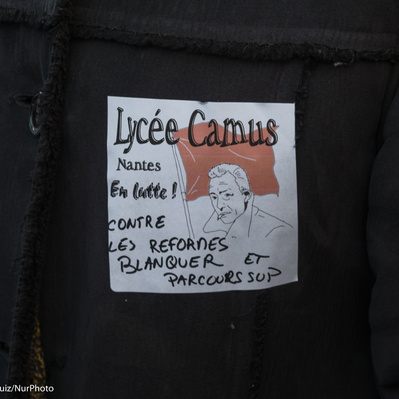 Lycée Camus
Nantes
En lutte !
CONTRE
LES REFORMES
BLANQUER ET
PARCOURS SUP
uiz/NurPhoto